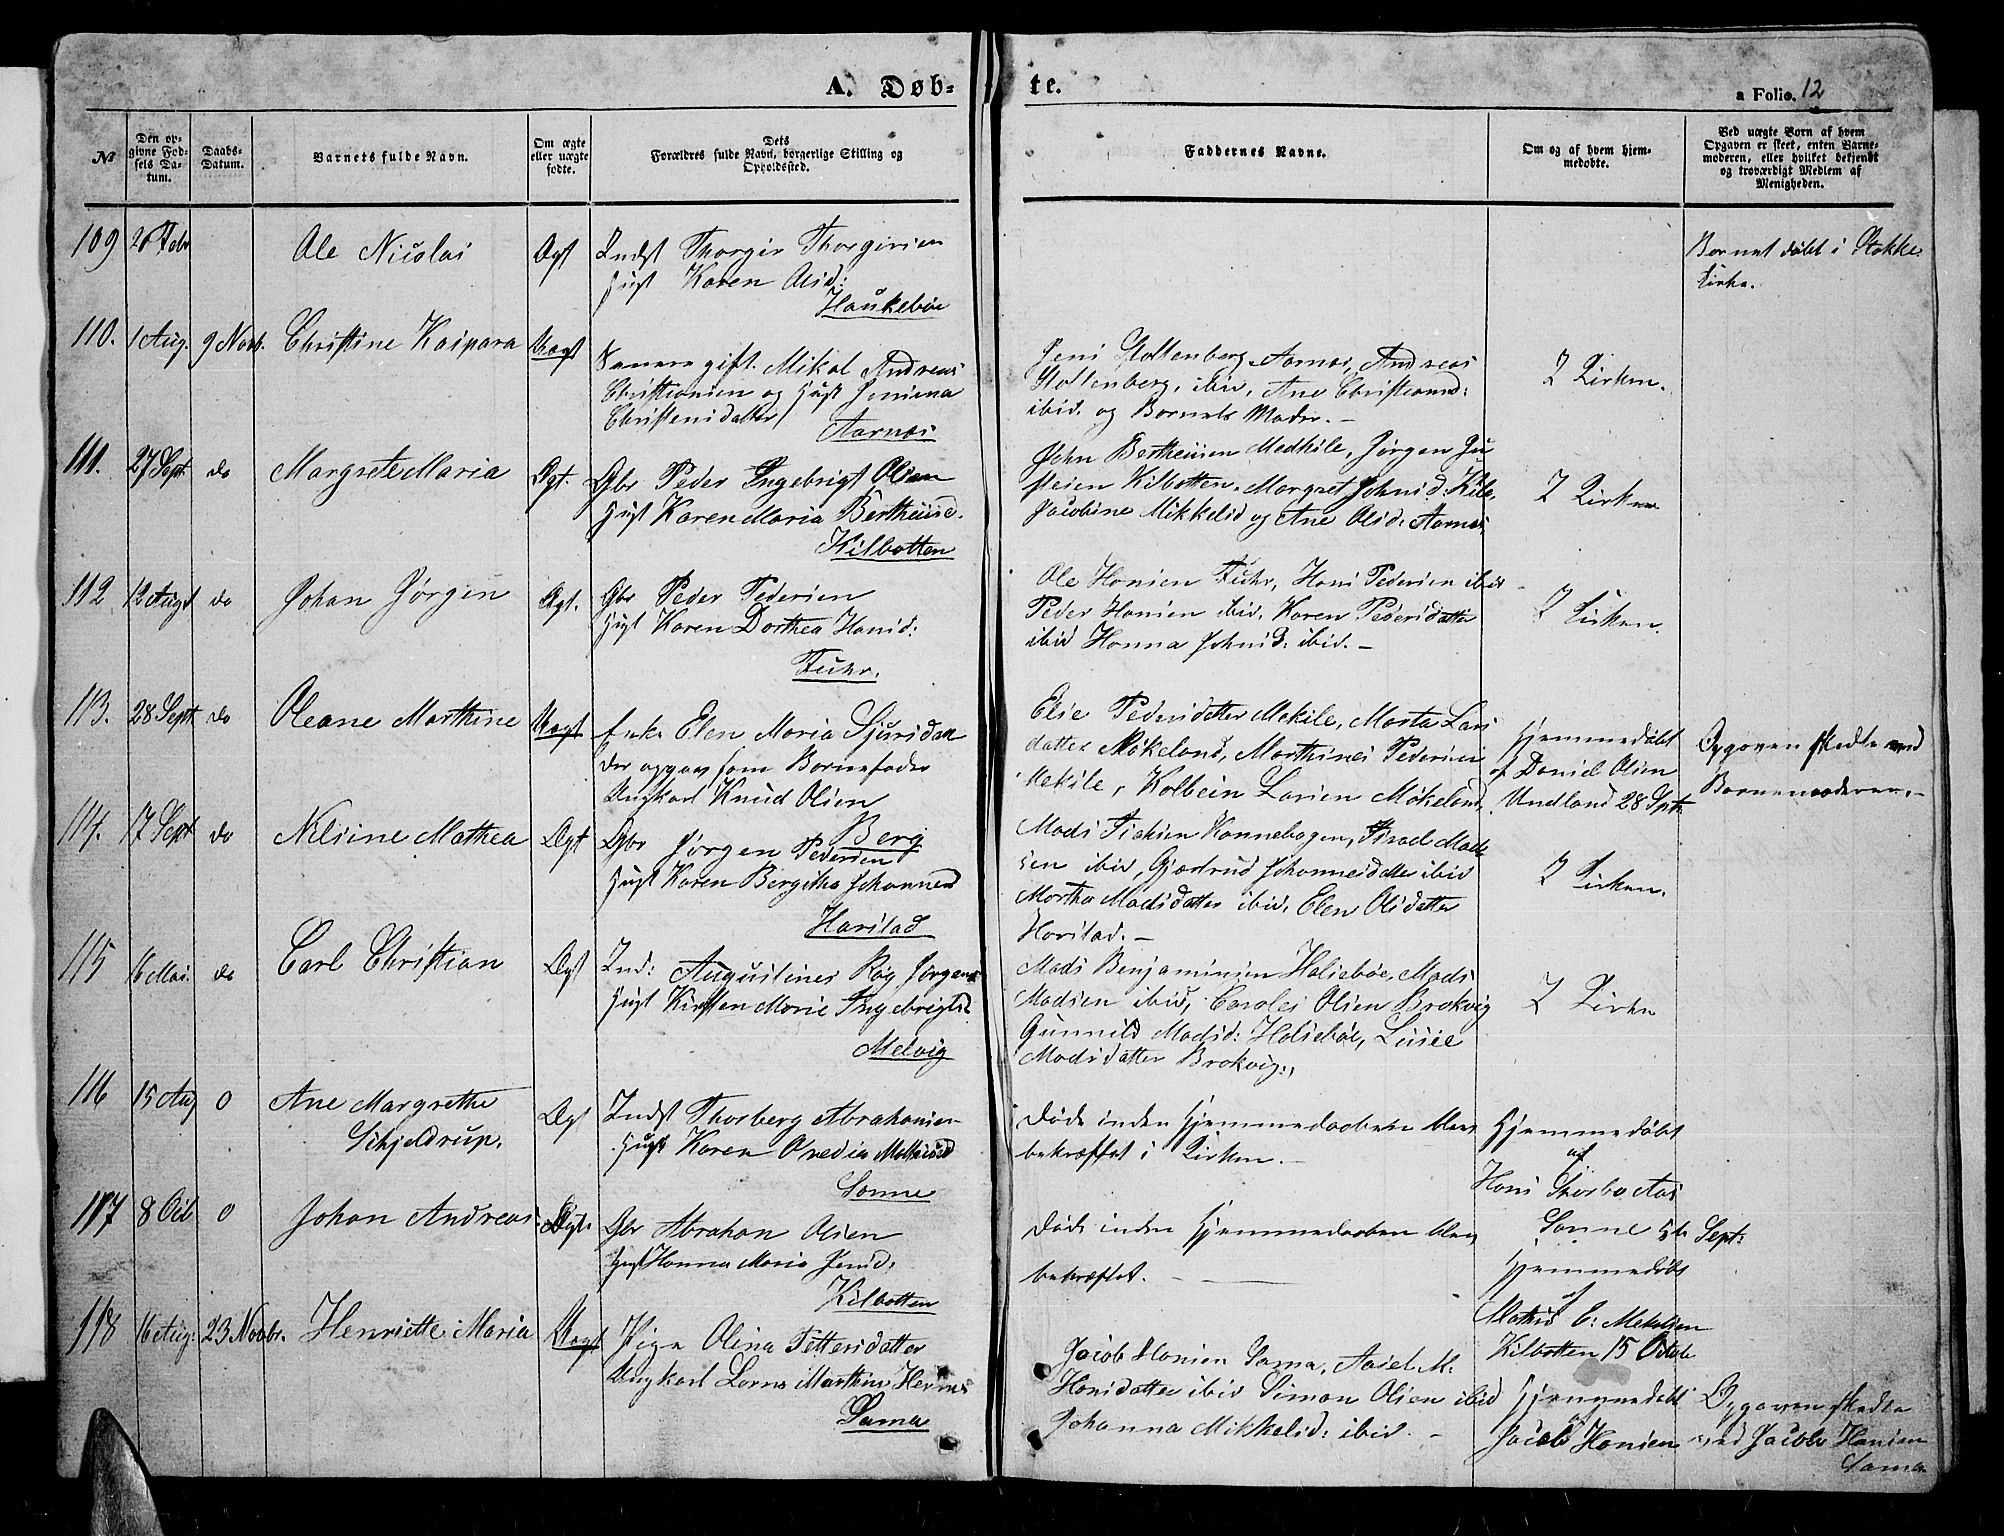 A. Døb-
te.
a Folio. 12
№
Den op-
givne Fod-
sels Da-
tum.
Daabs-
Datum.
Barnets fulde Navn.
Om ægte
eller uægte
fodte.
Dets
Forældres fulde Navn, borgerlige Stilling og
Opholdssted.
Faddernes Navne.
Om og af hvem hjem-
medobte.
Ved uægte Born af hvem
Opgaven er skeet, enten Barne-
moderen, eller hvilket bekjendt
og troværdigt Medlem af
Menigheden.
109
Febr
Ole Nicolai
Ægt
Indst Thorgir Thorgirsen
Hust Karen Olsd:
Haukebøe
Barnet døbt i
Kirke.
110.
1 Aug.
9 Novb.
Christine Kaspara
Uægt
gift. Mikal Andreas
Christiansen og Hust Jensina
Christensdatter
Aarnæs
Jens Stoltenberg Aarnæs, Andreas
Stoltenberg, ibid, Ane Christiansd:
ibid. og Barnets Moder. -
I Kirken.
111.
27 Sept
do
Margrete Maria
Ægt.
Gbr Peder Ingebrigt Olsen
Hust Karen Maria Bertheusd.
Kilbotten
John Bertheusen Medkile, Jørgen Ju-
steien Kilbotten, Margret Johnsd: Kile,
Jacobine Mikkelsd og Ane Olsd. Aarnæs,
I Kirken
112
12 Augt
do
Johan Jørgen
Ægt.
Gbr Peder Pedersen
Hust Karen Dorthea Hansd:
Fuhr.
Ole Hansen Fuhr, Hans Pedersen ibid
Peder Hansen ibid, Karen Pedersdatter
ibid Hanna Johnsd: ibid. -
I Kirken.
113.
28 Sept
do
Oleane Marthine
Uægt
Enke Elen Maria Sjursdatt
der opgav som Barnefader
Ungkarl Knud Olsen
Berg
Elie Pedersdatter Mekile, Marta Lars
datter Møkeland, Marthines Pedersen
Mekile, Kolbein Larsen Møkeland
Hjemmedøbt
af Daniel Olsen
Undland 28 Sptr
Opgaven skedte ved
Barnemoderen. -
114.
17 Sept
do
Nelsine Mathea
Ægt
Gbr Jørgen Pedersen
Hust Karen Bergitha Johannesd
Harstad
Mads Kannebogen, Israel Mad-
sen ibid, Gjærtrud Johannesdatter ibid
Martha Madsdatter ibid, Elen Olsdatter
Harstad. -
I Kirken.
115
16 Mai.
do
Carl Christian
Ægt
Ind: Augustines Røg Jørgens
Hust Kirsten Marie Ingebrigtsd
Melvig
Mads Benjaminsen Halsebøe, Mads
Madsen ibid, Caroles Olsen Brokvig
Gunnild Madsd: Halsebøe, Lusie
Madsdatter Brokvig.
I Kirken
116
15 Aug
0
Ane Margrethe
Schjeldrup.
Ægt
Indst Thorberg Abrahamsen
Hust Karen Ovedia Mathisd
Sanne
Døde inden Hjemmedaaben blev
bekræftet i Kirken. -
Hjemmedøbt
af
Hans Aas
Sanne 5te Sept:
117
8
0
Johan Andreas
Ægt
Gbr Abraham Olsen
Hust Hanna Maria Jensd.
Kilbotten
Døde inden Hjemmedaaben blev
bekræftet. -
Hjemmedøbt
af
Mathis
Kilbotten 15 Octob
118
16 Aug:
23 Novbr.
Henriette Maria
Uægt
Pige Olina Pettersdatter
Ungkarl Marthin
Sama
Jacob Hansen Sama, M.
Hansdatter ibid Simon Olsen ibid
Johanna Mikkelsd: ibid. -
Hjemmedøbt
af
Jacob Hansen
Opgaven skedte
ved Jacob Hansen
Sama